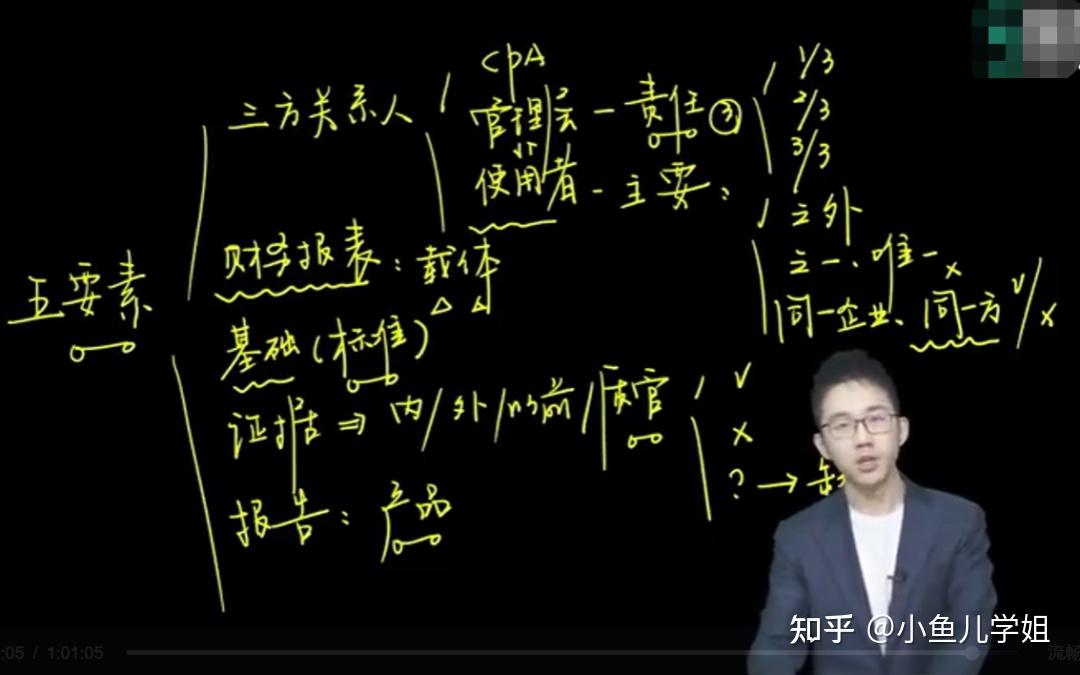 CPA
1/3
三方关系人
管理层 - 责任 ③
2/3
3/3
使用者 - 主要：
之外
财务报表：载体
之一、唯一 x
五要素
同一企业、同一方 √/x
基础（标准）
证据 ⇒ 内/外/以前/质官
√
x
? →
报告：产品
知乎 @小鱼儿学姐
:05 / 1:01:05
流畅